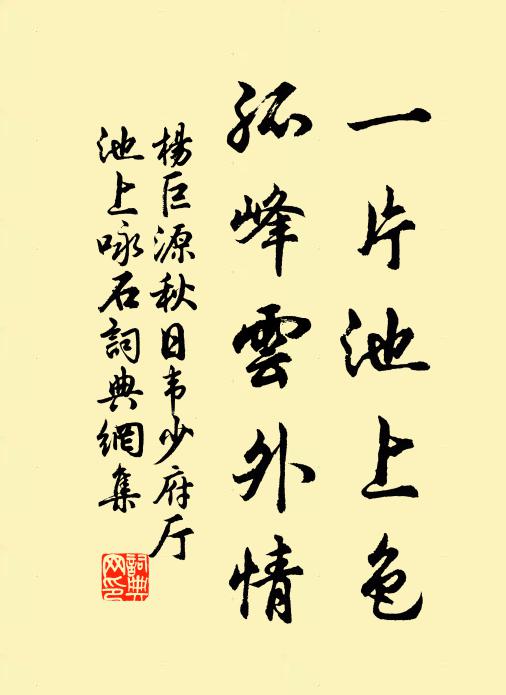 一片池上色
孤峰雲外情
楊巨源秋日韦少府厅
池上咏石詞典網集
詞典
网印